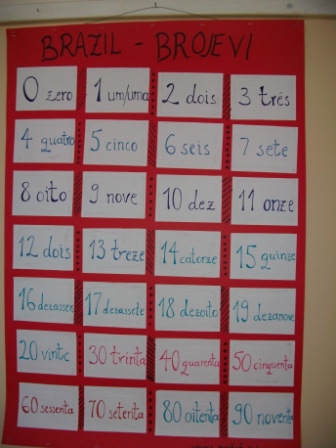 BRAZIL - BROJEVI
0 zero 1 um/uma 2 dois 3 três
4 quatro 5 cinco 6 seis 7 sete
8 oito 9 nove 10 dez 11 onze
12 dois 13 treze 14 catorze 15 quinze
16 dezasseis 17 dezassete 18 dezoito 19 dezanove
20 vinte 30 trinta 40 quarenta 50 cinquenta
60 sessenta 70 setenta 80 oitenta 90 noventa